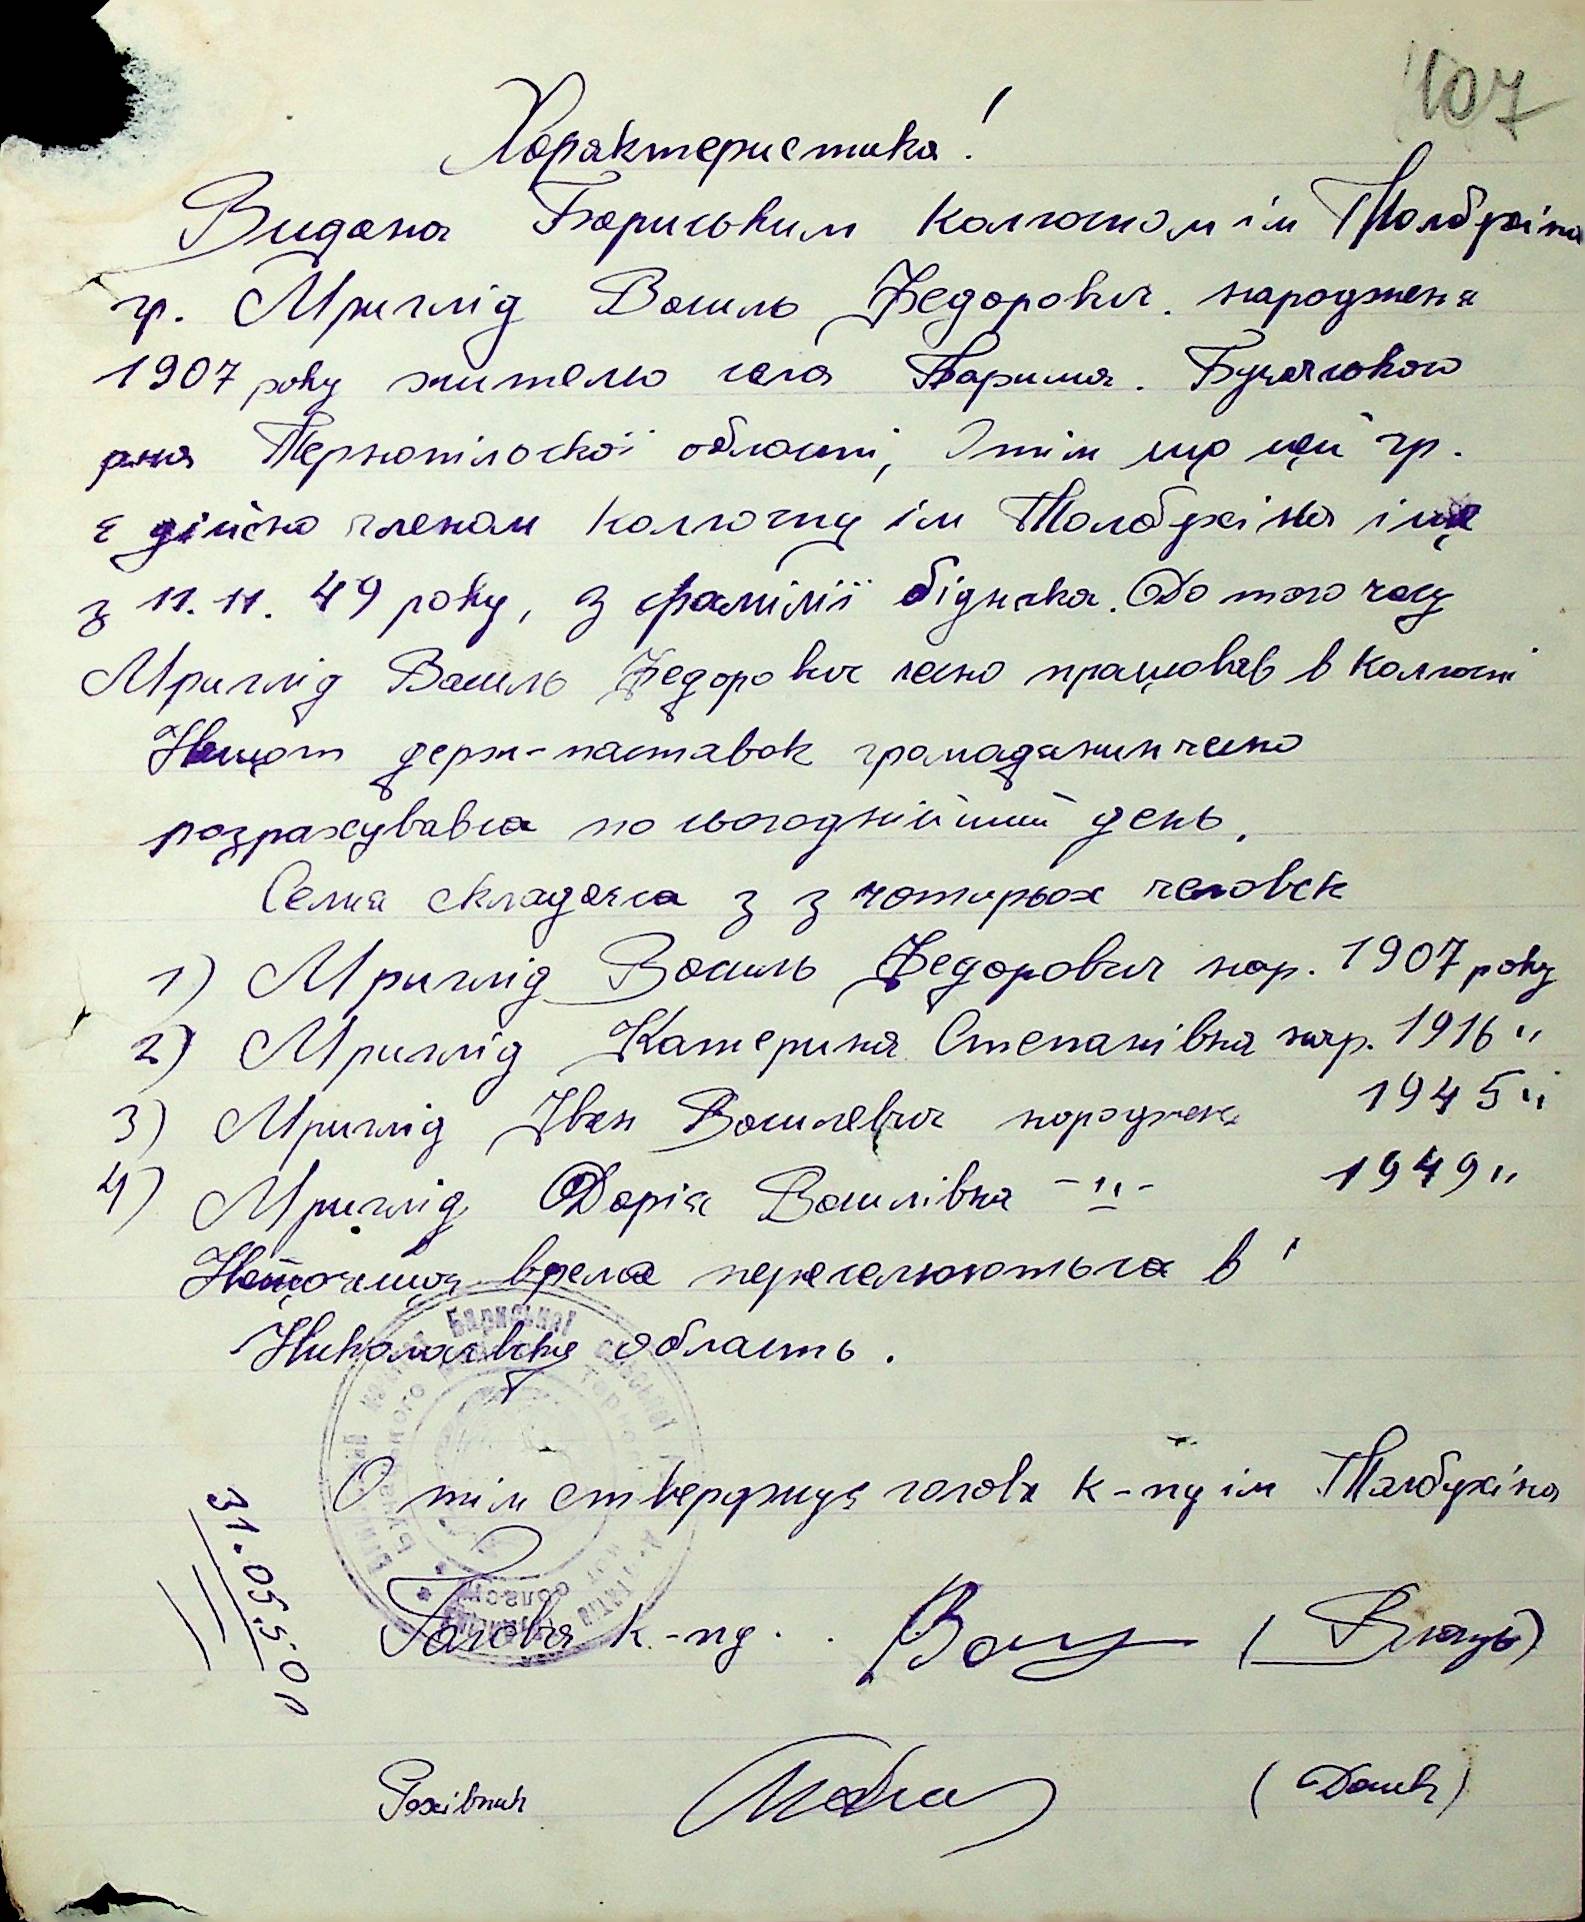 107
Характеристика!
Видана Бариським колгоспом ім Толбухіна
гр. Мриглід Василь Федорович. народження
1907 року жителю села Бариша. Бучачського
р-на Тернопільської області, Отім що цей гр.
є дійсно членом колгоспу ім Толбухіна іще
з 11. 11. 49 року, з фамілії бідняка. До того часу
Мриглід Василь Федорович чесно працював в колгоспі
Нащот держ-поставок громадянин чесно
розрахувався по сьогоднійший день.
Семия складаяся з з чотирьох человек
1) Мриглід Василь Федорович нар. 1907 року
2) Мриглід Катерина Степанівна нар. 1916 "
3) Мриглід Іван Василевич народження 1945 "
4) Мриглід Дарія Василівна -"- 1949 "
Настоящоя время переселюються в
Николаєвску область.
О тім стверджує голова к-пу ім Толбухіна
31.05.50 р
Голова к-пу.
Рахівник